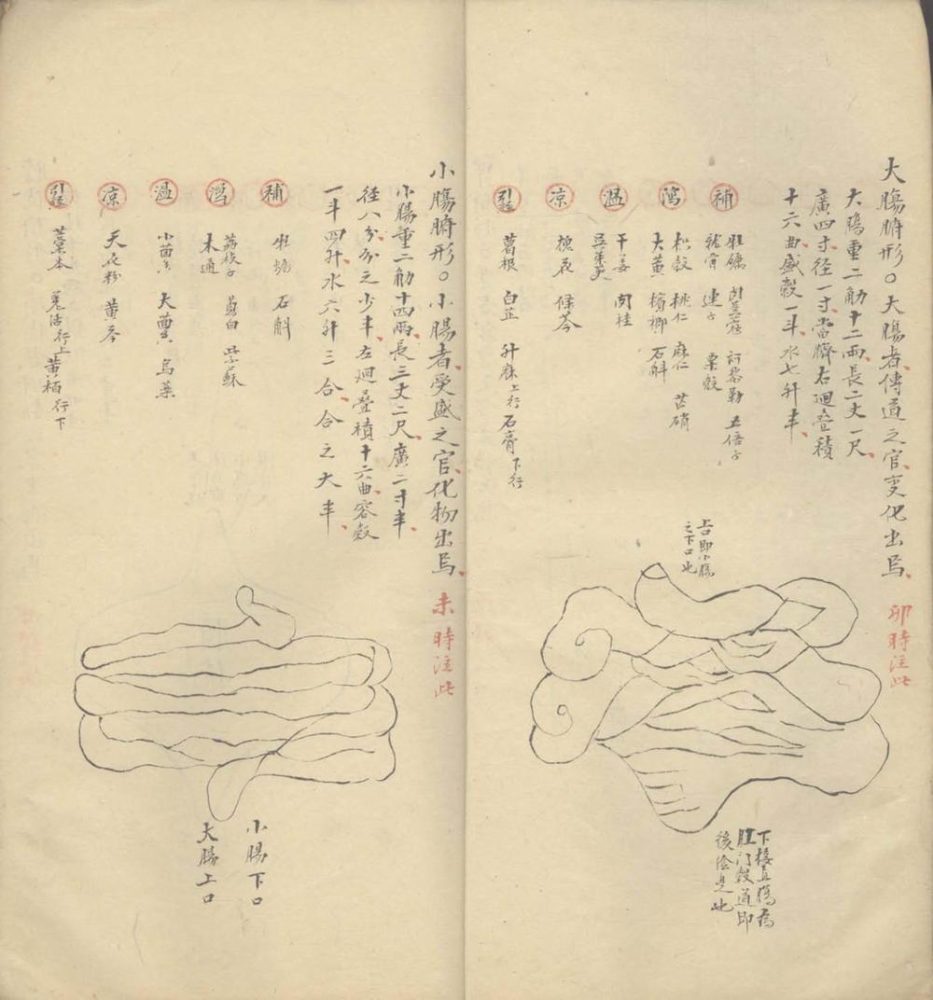 大腸腑形○大腸者傳道之官変化出焉、卯時注此
大腸重二觔十二両、長二丈一尺、
廣四寸、径一寸、當臍右廻疊積
十六曲、盛穀一斗、水七升半、
補
訶黎勒 五倍子
龍骨 連子 粟殼
瀉
枳殼 桃仁 麻仁 芒硝
大黃 檳榔 石斛
温
干姜 肉桂
吳茱萸
凉
槐花 条芩
引経
葛根 白芷 升麻上行 石膏下行
上口即小腸
之下口也
下接直腸為
肛门穀道即
後陰是也
小腸腑形○小腸者受盛之官、化物出焉、未時注此
小腸重二觔十四両、長三丈二尺、廣二寸半、
径八分分之少半、左廻疊積十六曲、容穀
一斗四升、水六升三合合之大半、
補
牡蛎 石斛
瀉
葱白 紫蘇
木通
温
小茴香 大茴 烏薬
凉
天花粉 黄芩
引経
藁本 羌活行上 黄栢行下
小腸下口
大腸上口